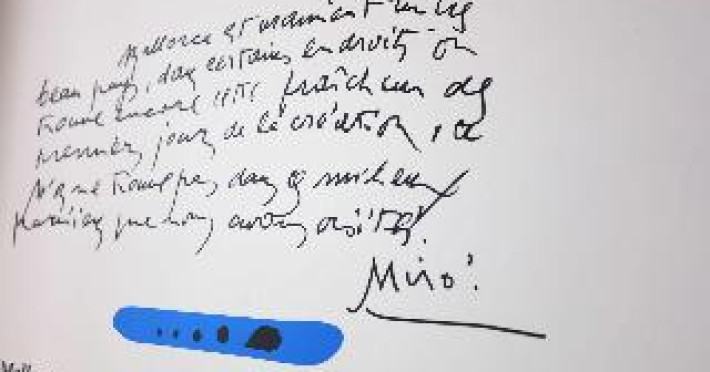 Mallorca est vraiment un
beau pays, dans certains endroits on
trouve encore cette fraîcheur des
premiers jours de la création,
trouve pas dans milieux
que nous avons
Miró.